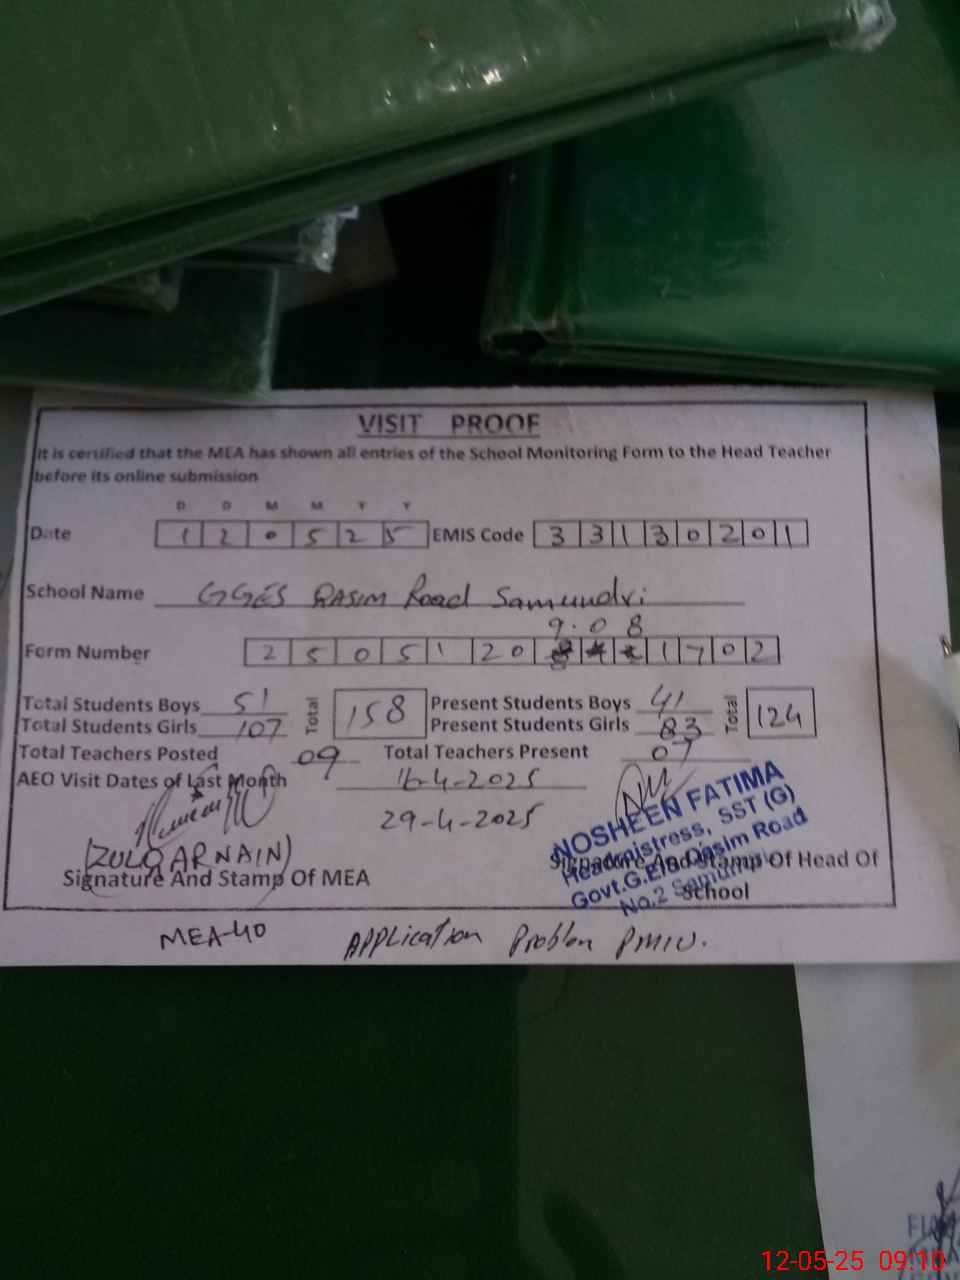 VISIT PROOF
It is certified that the MEA has shown all entries of the School Monitoring Form to the Head Teacher
before its online submission
D D M M Y Y
Date 1 2 0 5 2 5 EMIS Code 3 3 1 3 0 2 0 1
School Name GGES QASIM Road Samundri
9.08
Form Number 2 5 0 5 1 2 0 1 7 0 2
Total Students Boys 51 Total 158 Present Students Boys 41 Total 124
Total Students Girls 107 Present Students Girls 83
Total Teachers Posted 09 Total Teachers Present 07
AEO Visit Dates of Last Month 16-4-2025
29-4-2025
(ZULQARNAIN)
Signature And Stamp Of MEA
NOSHEEN FATIMA
Headmistress, SST (G)
Govt.G.E/S Qasim Road
No.2 Samundri
Signature And Stamp Of Head Of
School
MEA-40 Application Problem PMIU.
12-05-25 09:10